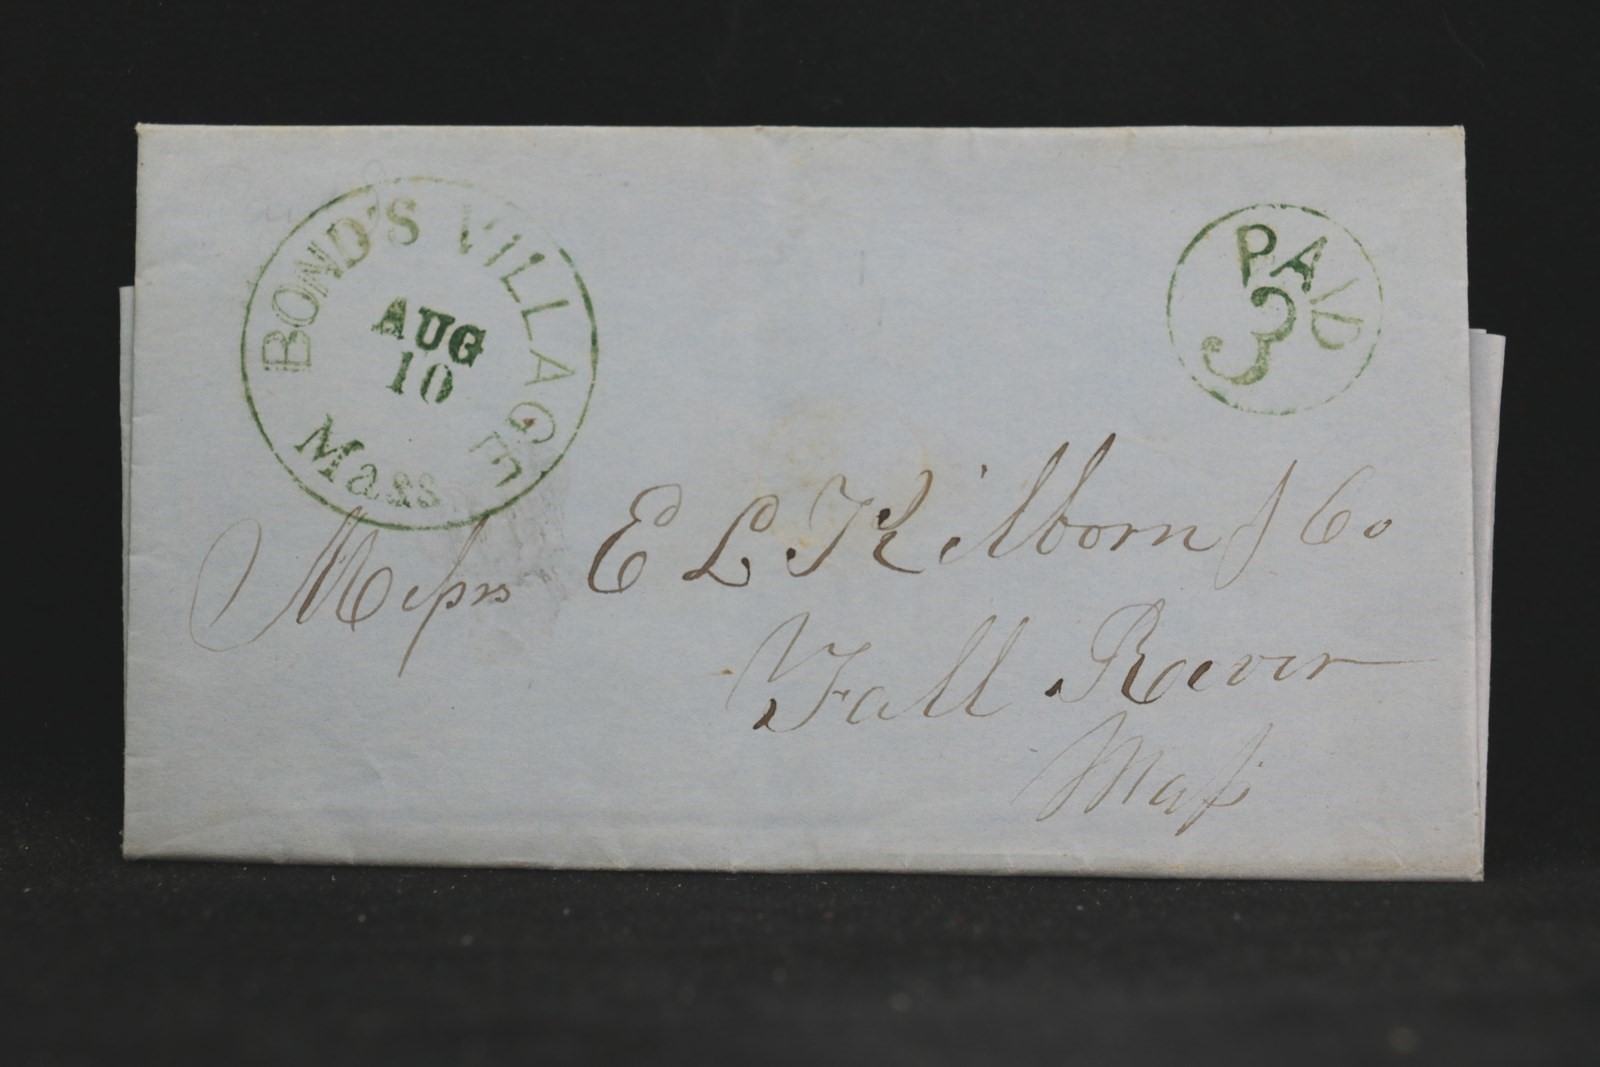 BOND'S VILLAGE
AUG
10
Mass
PAID
3
Messrs E L Kilborn & Co
Fall River
Mass